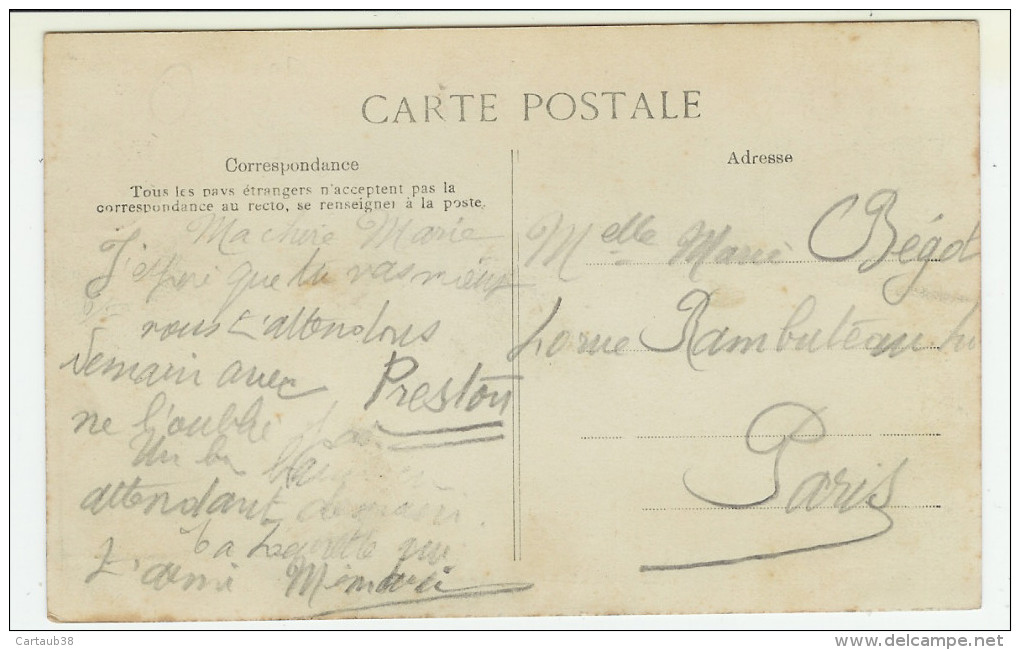 CARTE POSTALE
Correspondance
Tous les pays étrangers n'acceptent pas la
correspondance au recto, se renseigner à la poste.
Ma chère Marie
J'espère que tu vas mieux
nous t'attendons
demain avec Preston
ne l'oublie pas
Un bon
attendant demain
ta
L'ami
Adresse
Melle Marie Bégot
rue Rambuteau
Paris
Cartaub38
www.delcampe.net